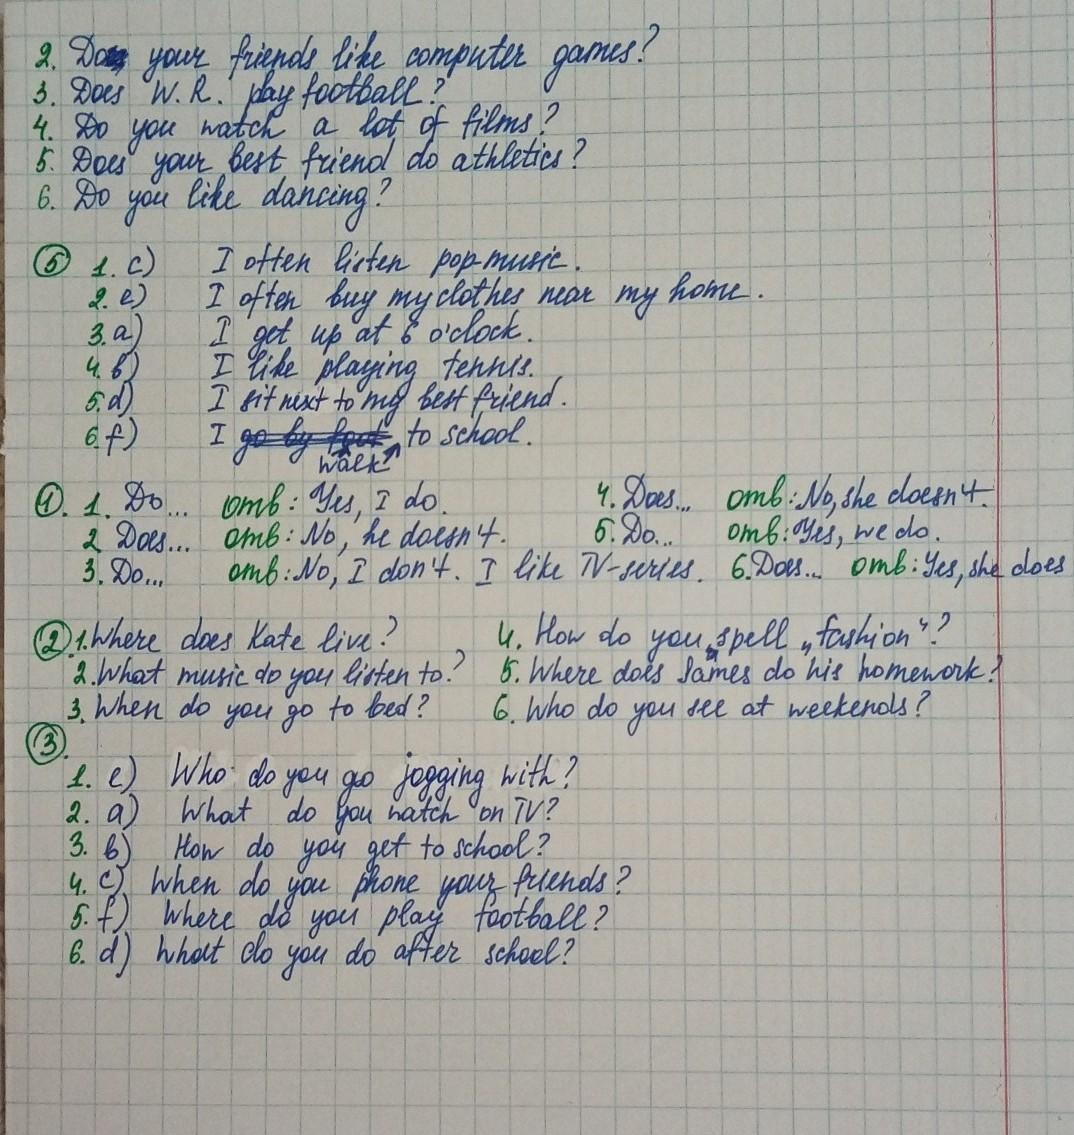 2. Do your friends like computer games?
3. Does W.R. play football?
4. Do you watch a lot of films?
5. Does your best friend do athletics?
6. Do you like dancing?
5 1. c) I often listen pop-music.
2. e) I often buy my clothes near my home.
3. a) I get up at 6 o'clock.
4. b) I like playing tennis.
5. d) I sit next to my best friend.
6. f) I go by foot to school.
walk
1. 1. Do... отв: Yes, I do. 4. Does... отв: No, she doesn't.
2. Does... отв: No, he doesn't. 5. Do... отв: Yes, we do.
3. Do... отв: No, I don't. I like TV-series. 6. Does... отв: Yes, she does
2 1. Where does Kate live? 4. How do you spell „fashion“?
2. What music do you listen to? 5. Where does James do his homework?
3. When do you go to bed? 6. Who do you see at weekends?
3.
1. e) Who do you go jogging with?
2. a) What do you watch on TV?
3. b) How do you get to school?
4. c) When do you phone your friends?
5. f) Where do you play football?
6. d) What do you do after school?